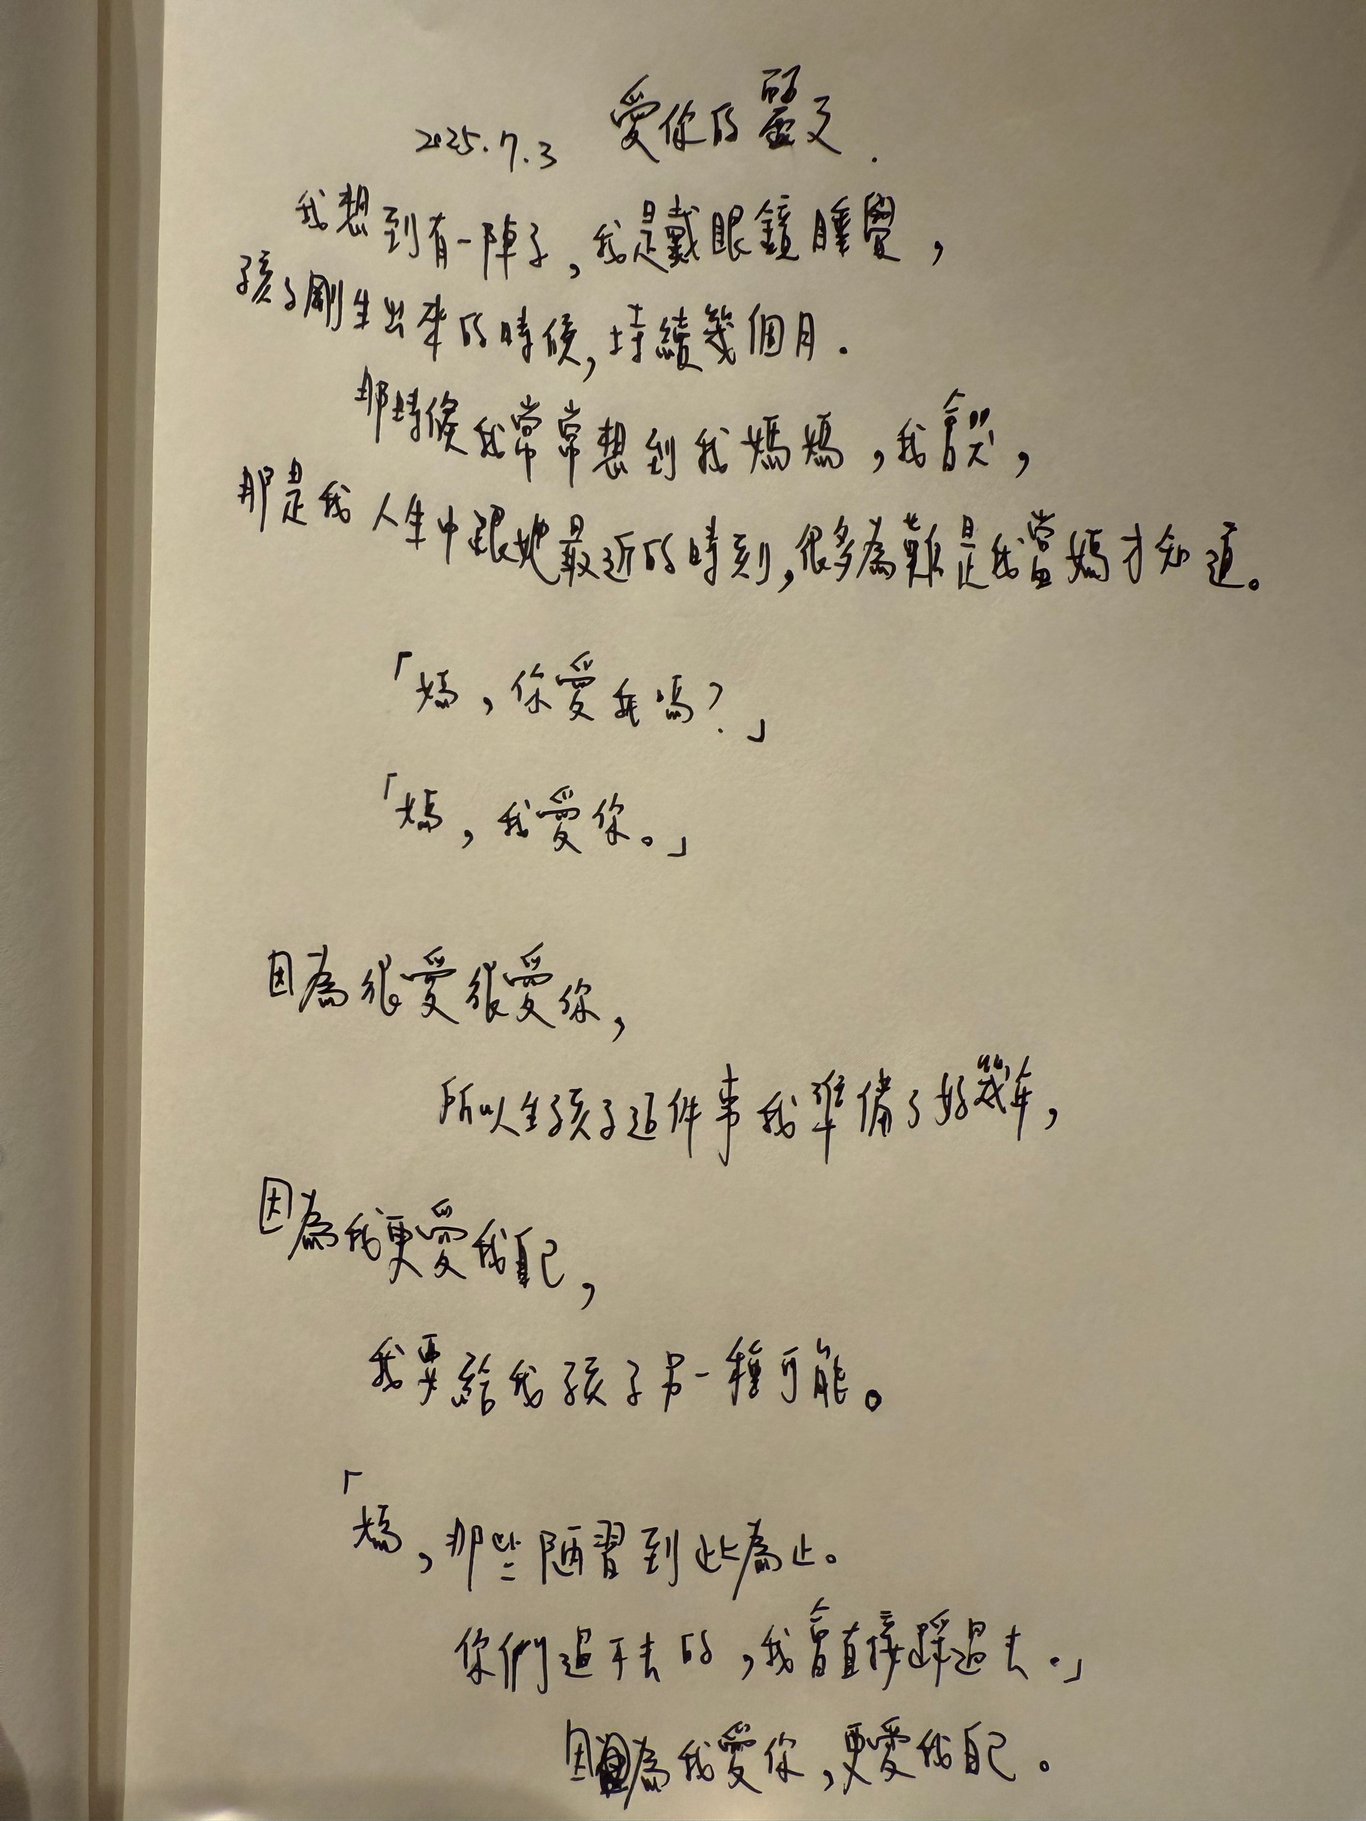 2025.7.3 愛你的
我想到有一陣子,我是戴眼鏡睡覺,
孩子剛生出來的時候,持續幾個月.
那時候我常常想到我媽媽,我會哭,
那是我人生中跟她最近的時刻,很多為難是我當媽才知道。
「媽,你愛我嗎?」
「媽,我愛你。」
因為很愛很愛你,
所以生孩子這件事我準備了好幾年,
因為我更愛我自己,
我要給我孩子另一種可能。
「媽,那些陋習到此為止。
你們過不去的,我會直接踩過去.」
因為我愛你,更愛我自己。